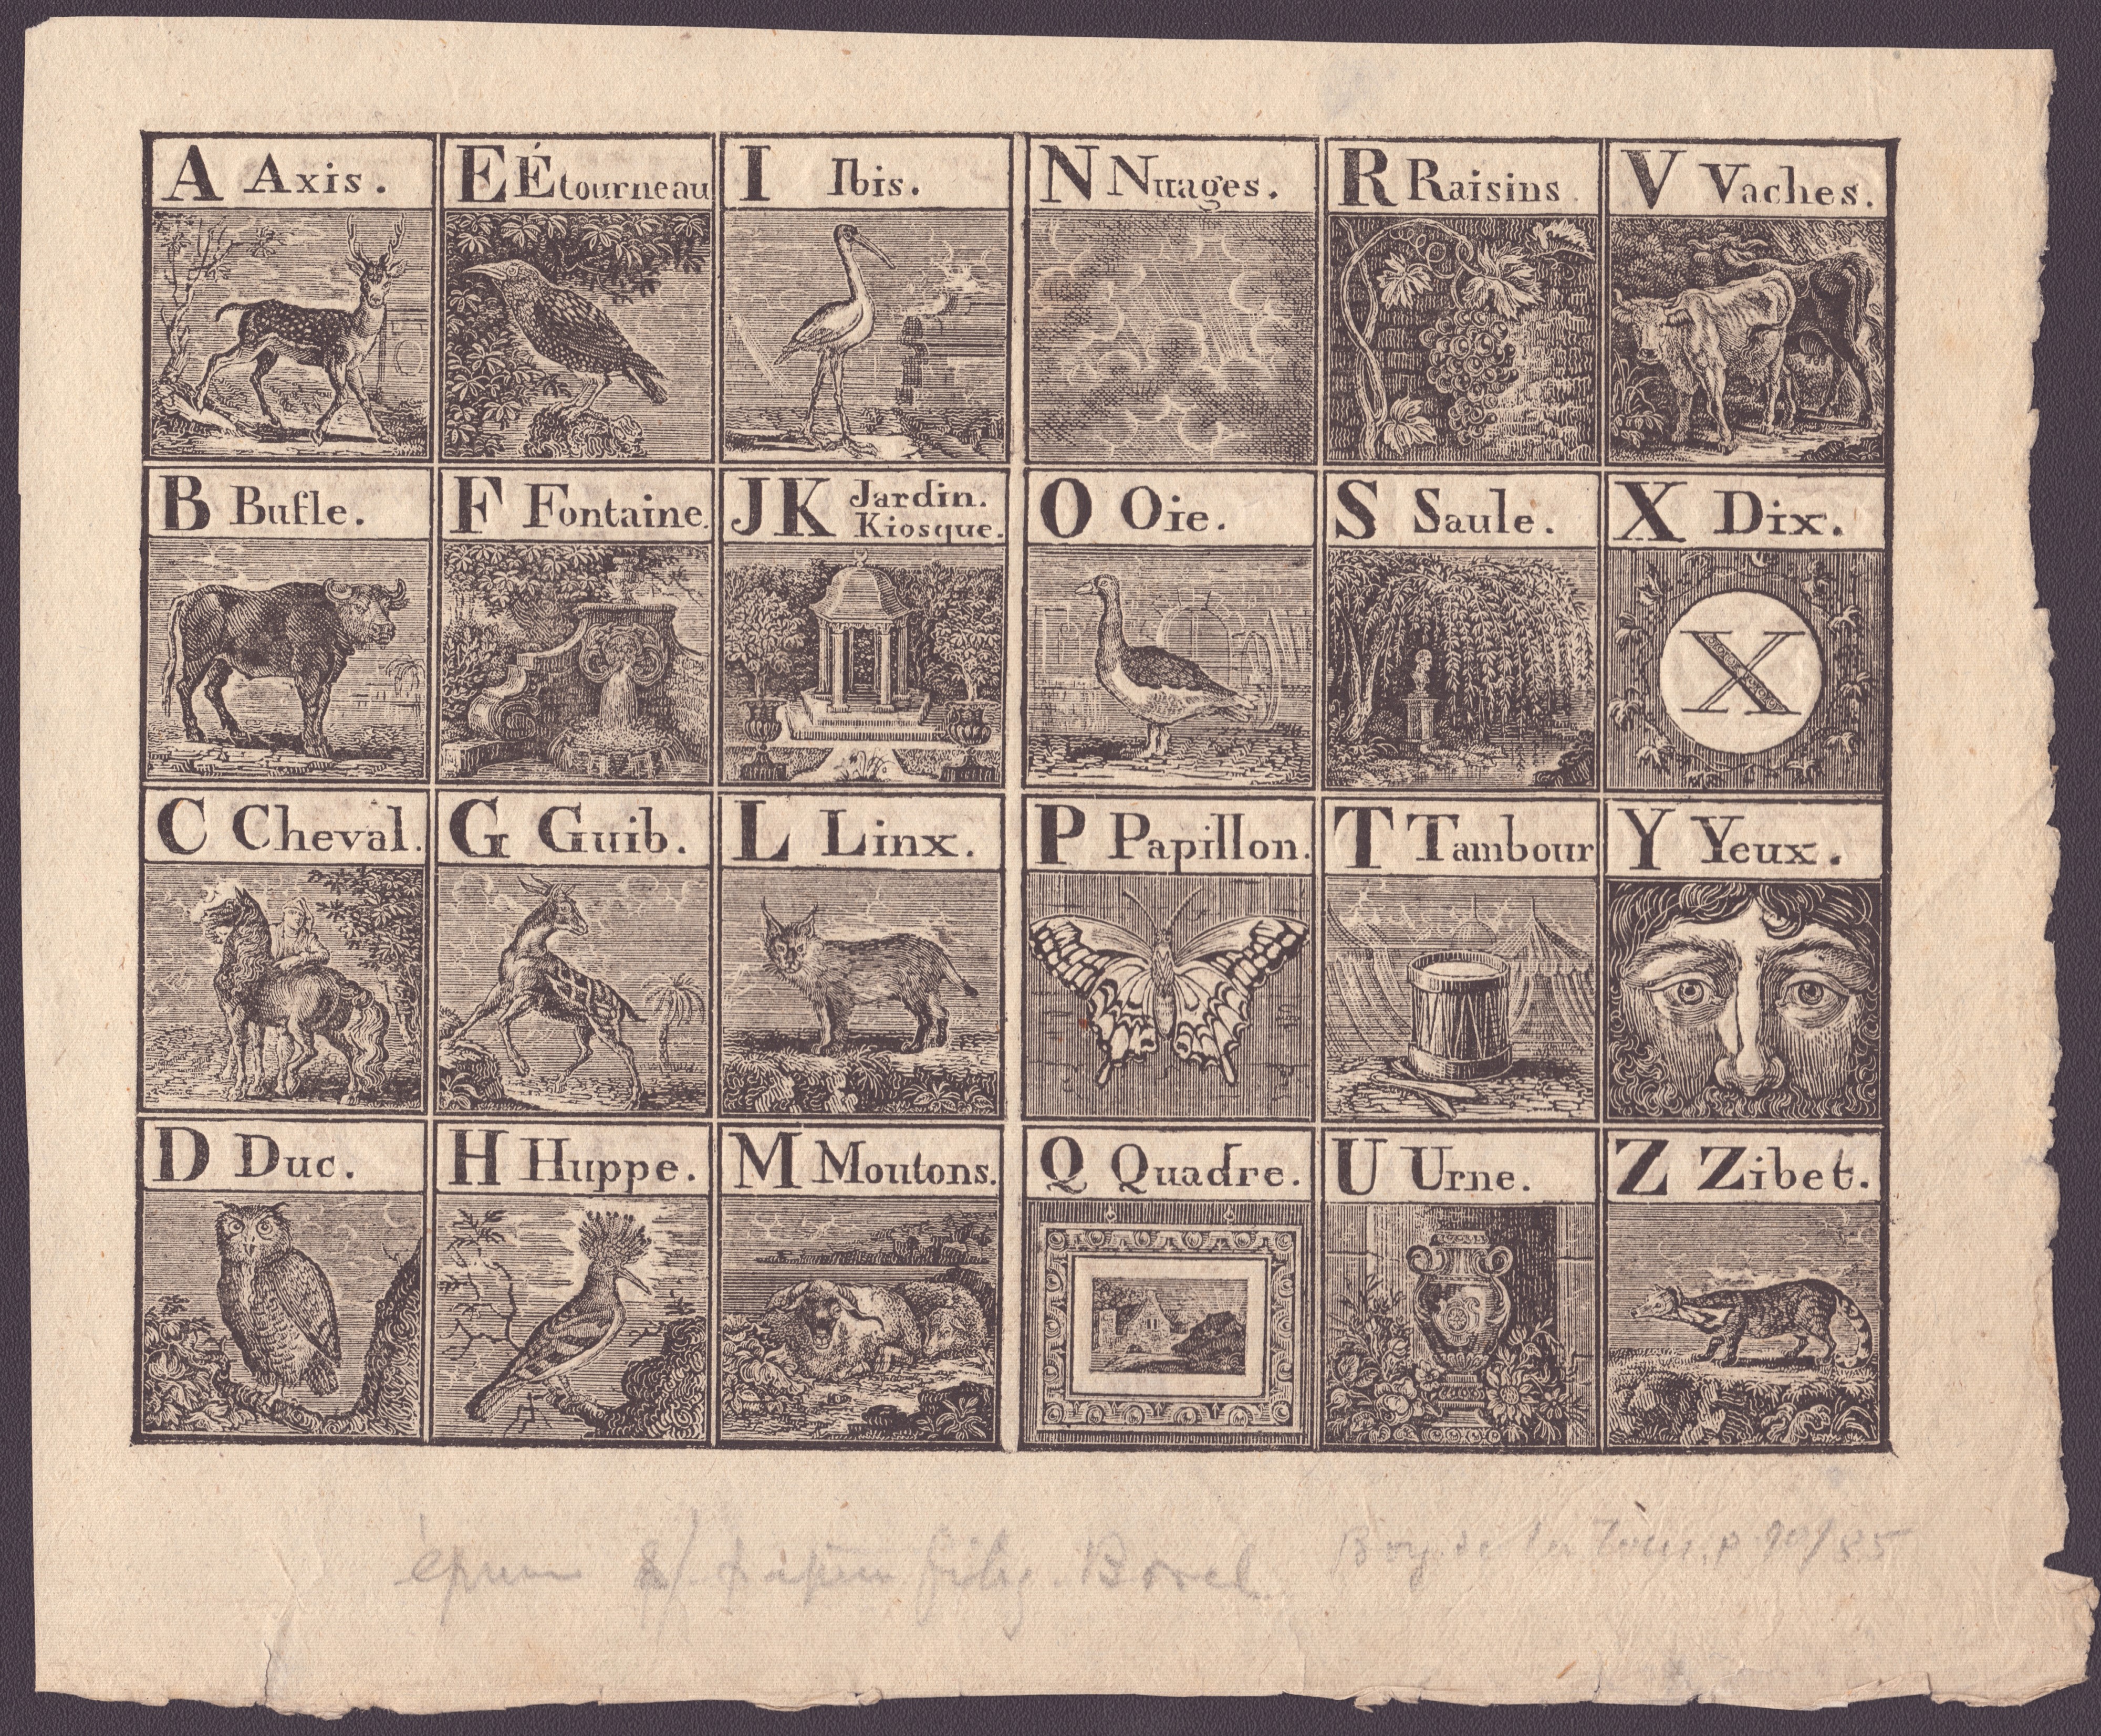 A Axis.
E Étourneau
I Ibis.
N Nuages.
R Raisins.
V Vaches.
B Bufle.
F Fontaine.
JK Jardin.
Kiosque.
O Oie.
S Saule.
X Dix.
X
C Cheval.
G Guib.
L Linx.
P Papillon.
T Tambour
Y Yeux.
D Duc.
H Huppe.
M Moutons.
Q Quadre.
U Urne.
Z Zibet.
papier filig. Borel
Boy de la Tour, p. 90/85